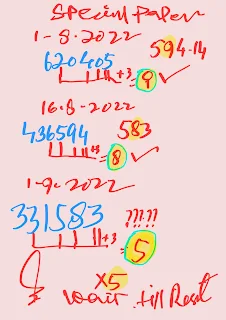 Special Paper
1-8-2022
594-14
620405
+3
= 9 ✓
16.8-2022
436594 583
+3
= 8 ✓
1-9-2022
331583 ?!?!?
+3
= 5
x5
wait till Result